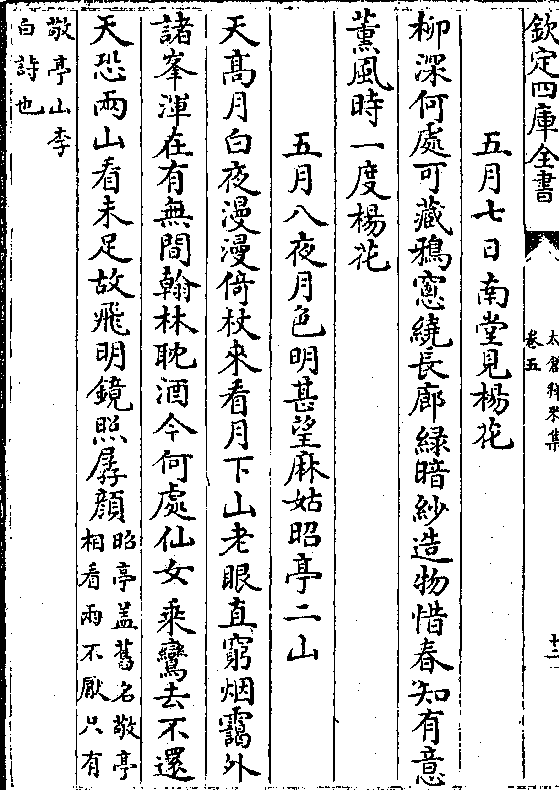 欽定四庫全書
太倉稊米集
卷五
十二
五月七日南堂見楊花
柳深何處可藏鴉窻繞長廊緑暗紗造物惜春知有意
薰風時一度楊花
五月八夜月色明甚望麻姑昭亭二山
天髙月白夜漫漫倚杖來看月下山老眼直窮烟靄外
諸峯渾在有無間翰林耽酒今何處仙女乘鸞去不還
天恐兩山看未足故飛明鏡照孱顔
昭亭盖舊名敬亭
相看兩不厭只有
敬亭山李
白詩也